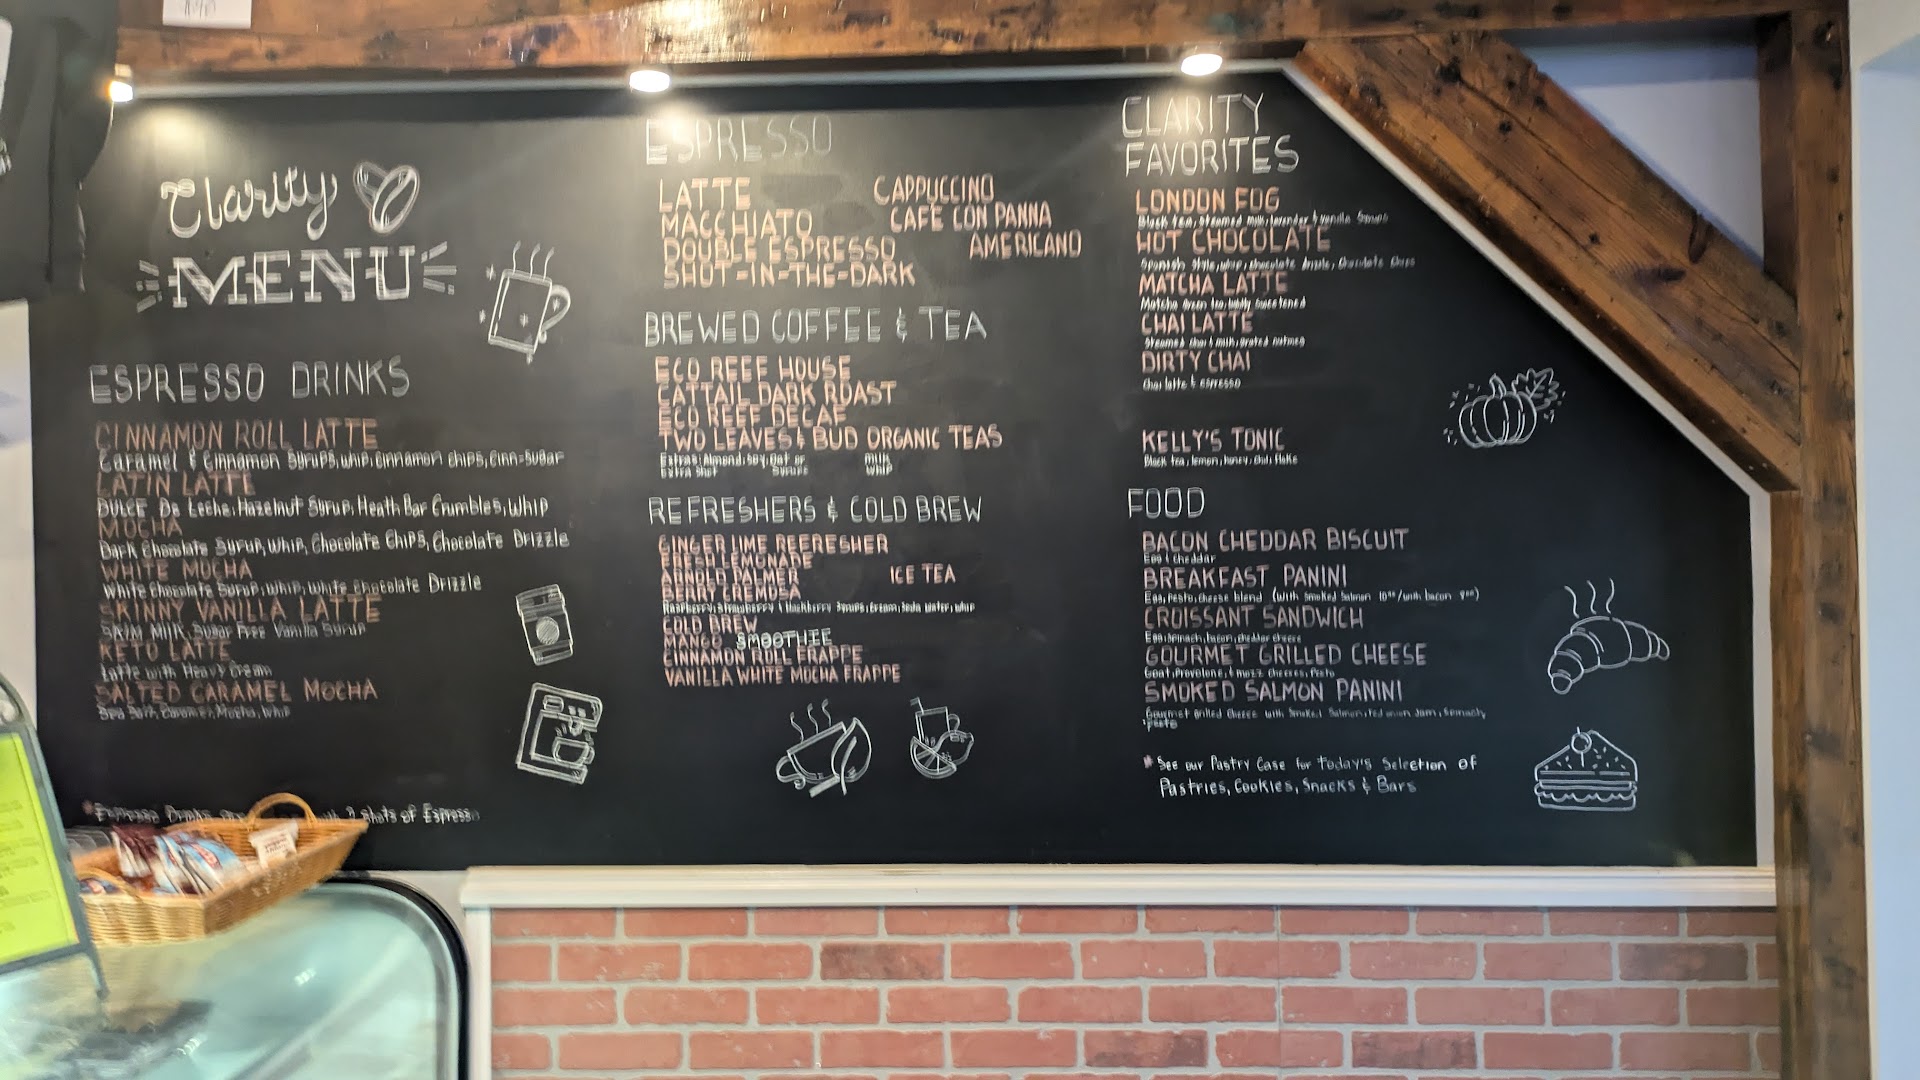 Clarity
MENU
ESPRESSO DRINKS
CINNAMON ROLL LATTE
Caramel & Cinnamon Syrups, whip, Cinnamon chips, Cinn-Sugar
LATIN LATTE
DULCE De Leche, Hazelnut Syrup, Heath Bar Crumbles, whip
MOCHA
Dark Chocolate Syrup, whip, Chocolate Chips, Chocolate Drizzle
WHITE MOCHA
White Chocolate Syrup, whip, white chocolate Drizzle
SKINNY VANILLA LATTE
Skim Milk, Sugar Free Vanilla Syrup
KETO LATTE
Latte with Heavy Cream
SALTED CARAMEL MOCHA
Sea Salt, Caramel, Mocha, Whip
*Espresso Drinks with 2 shots of Espresso
ESPRESSO
LATTE CAPPUCCINO
MACCHIATO CAFE CON PANNA
DOUBLE ESPRESSO AMERICANO
SHOT-IN-THE-DARK
BREWED COFFEE & TEA
ECO REEF HOUSE
CATTAIL DARK ROAST
ECO REEF DECAF
TWO LEAVES & BUD ORGANIC TEAS
Extras: Almond, Soy, Oat or milk
Extra Shot Syrups whip
REFRESHERS & COLD BREW
GINGER LIME REFRESHER
FRESH LEMONADE
ARNOLD PALMER ICE TEA
BERRY CREMOSA
Raspberry, Strawberry & blackberry Syrups, Cream, Soda water, whip
COLD BREW
MANGO SMOOTHIE
CINNAMON ROLL FRAPPE
VANILLA WHITE MOCHA FRAPPE
CLARITY
FAVORITES
LONDON FOG
Black tea, Steamed milk, lavender & vanilla Syrups
HOT CHOCOLATE
Spanish Style, whip, chocolate drizzle, Chocolate Chips
MATCHA LATTE
Matcha green tea, lightly sweetened
CHAI LATTE
Steamed chai & milk, grated nutmeg
DIRTY CHAI
Chai latte & espresso
KELLY'S TONIC
Black tea, lemon, honey, chili flake
FOOD
BACON CHEDDAR BISCUIT
Egg & Cheddar
BREAKFAST PANINI
Egg, pesto, cheese blend (with Smoked Salmon / with bacon )
CROISSANT SANDWICH
Egg, spinach, bacon, cheddar cheese
GOURMET GRILLED CHEESE
Goat, Provolone, & mozz cheeses, Pesto
SMOKED SALMON PANINI
Gourmet grilled Cheese with Smoked Salmon, red onion Jam, Spinach,
Pesto
* See our Pastry Case for Today's Selection of
Pastries, Cookies, Snacks & Bars